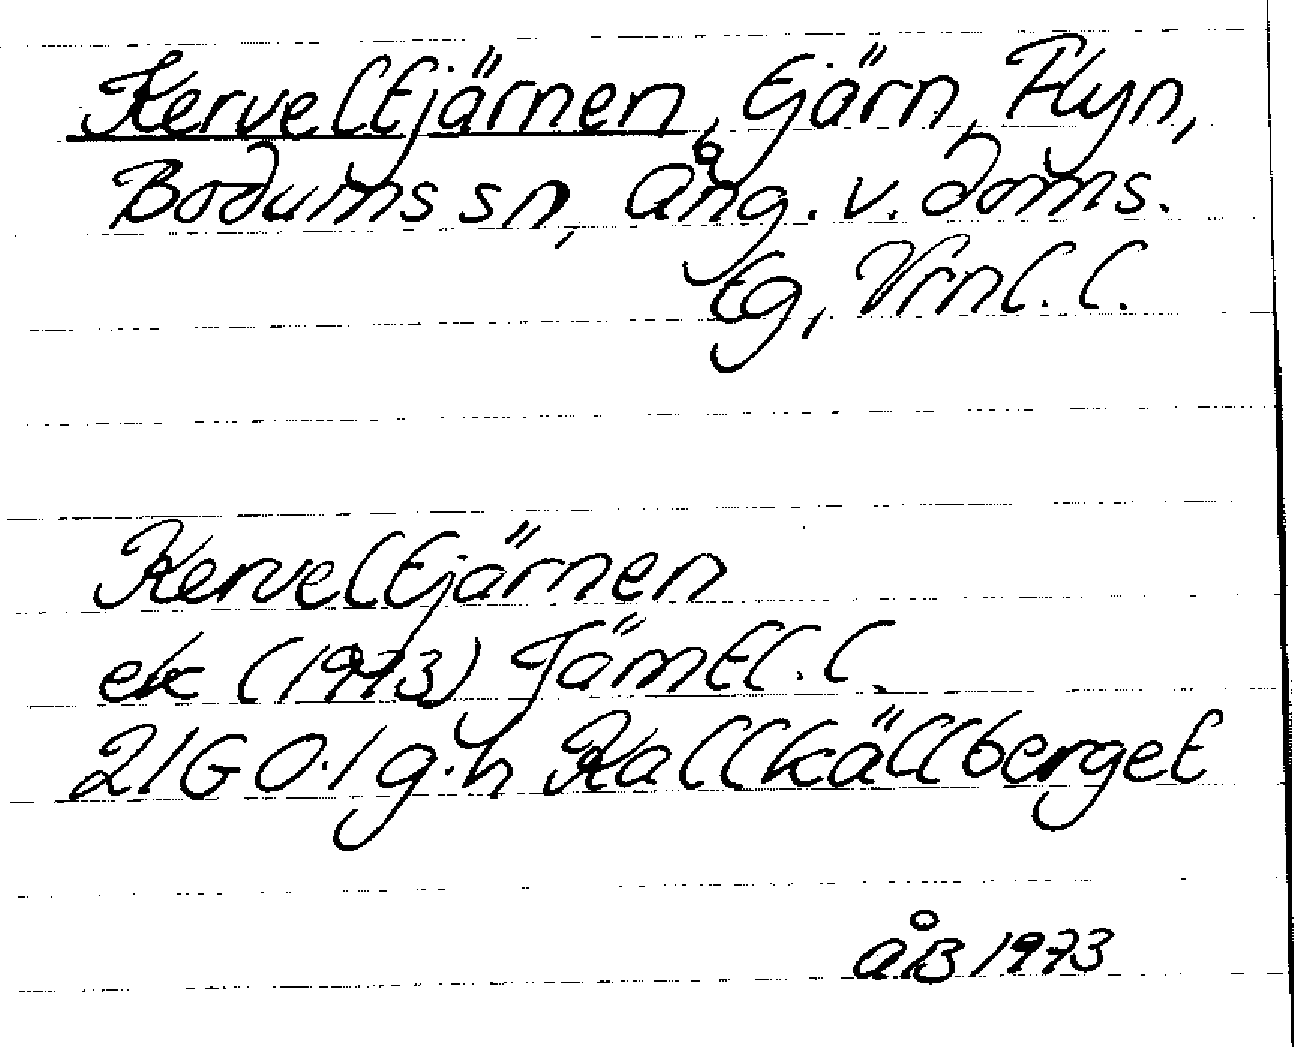 Kerveltjärnen, tjärn, Flyn,
Bodums sn, Ång. v. doms.
tg, Vrnl. l.
Kerveltjärnen
ek (1973) Jämtl. l.
21G 0-1 g-h Kallkällberget
åB 1973